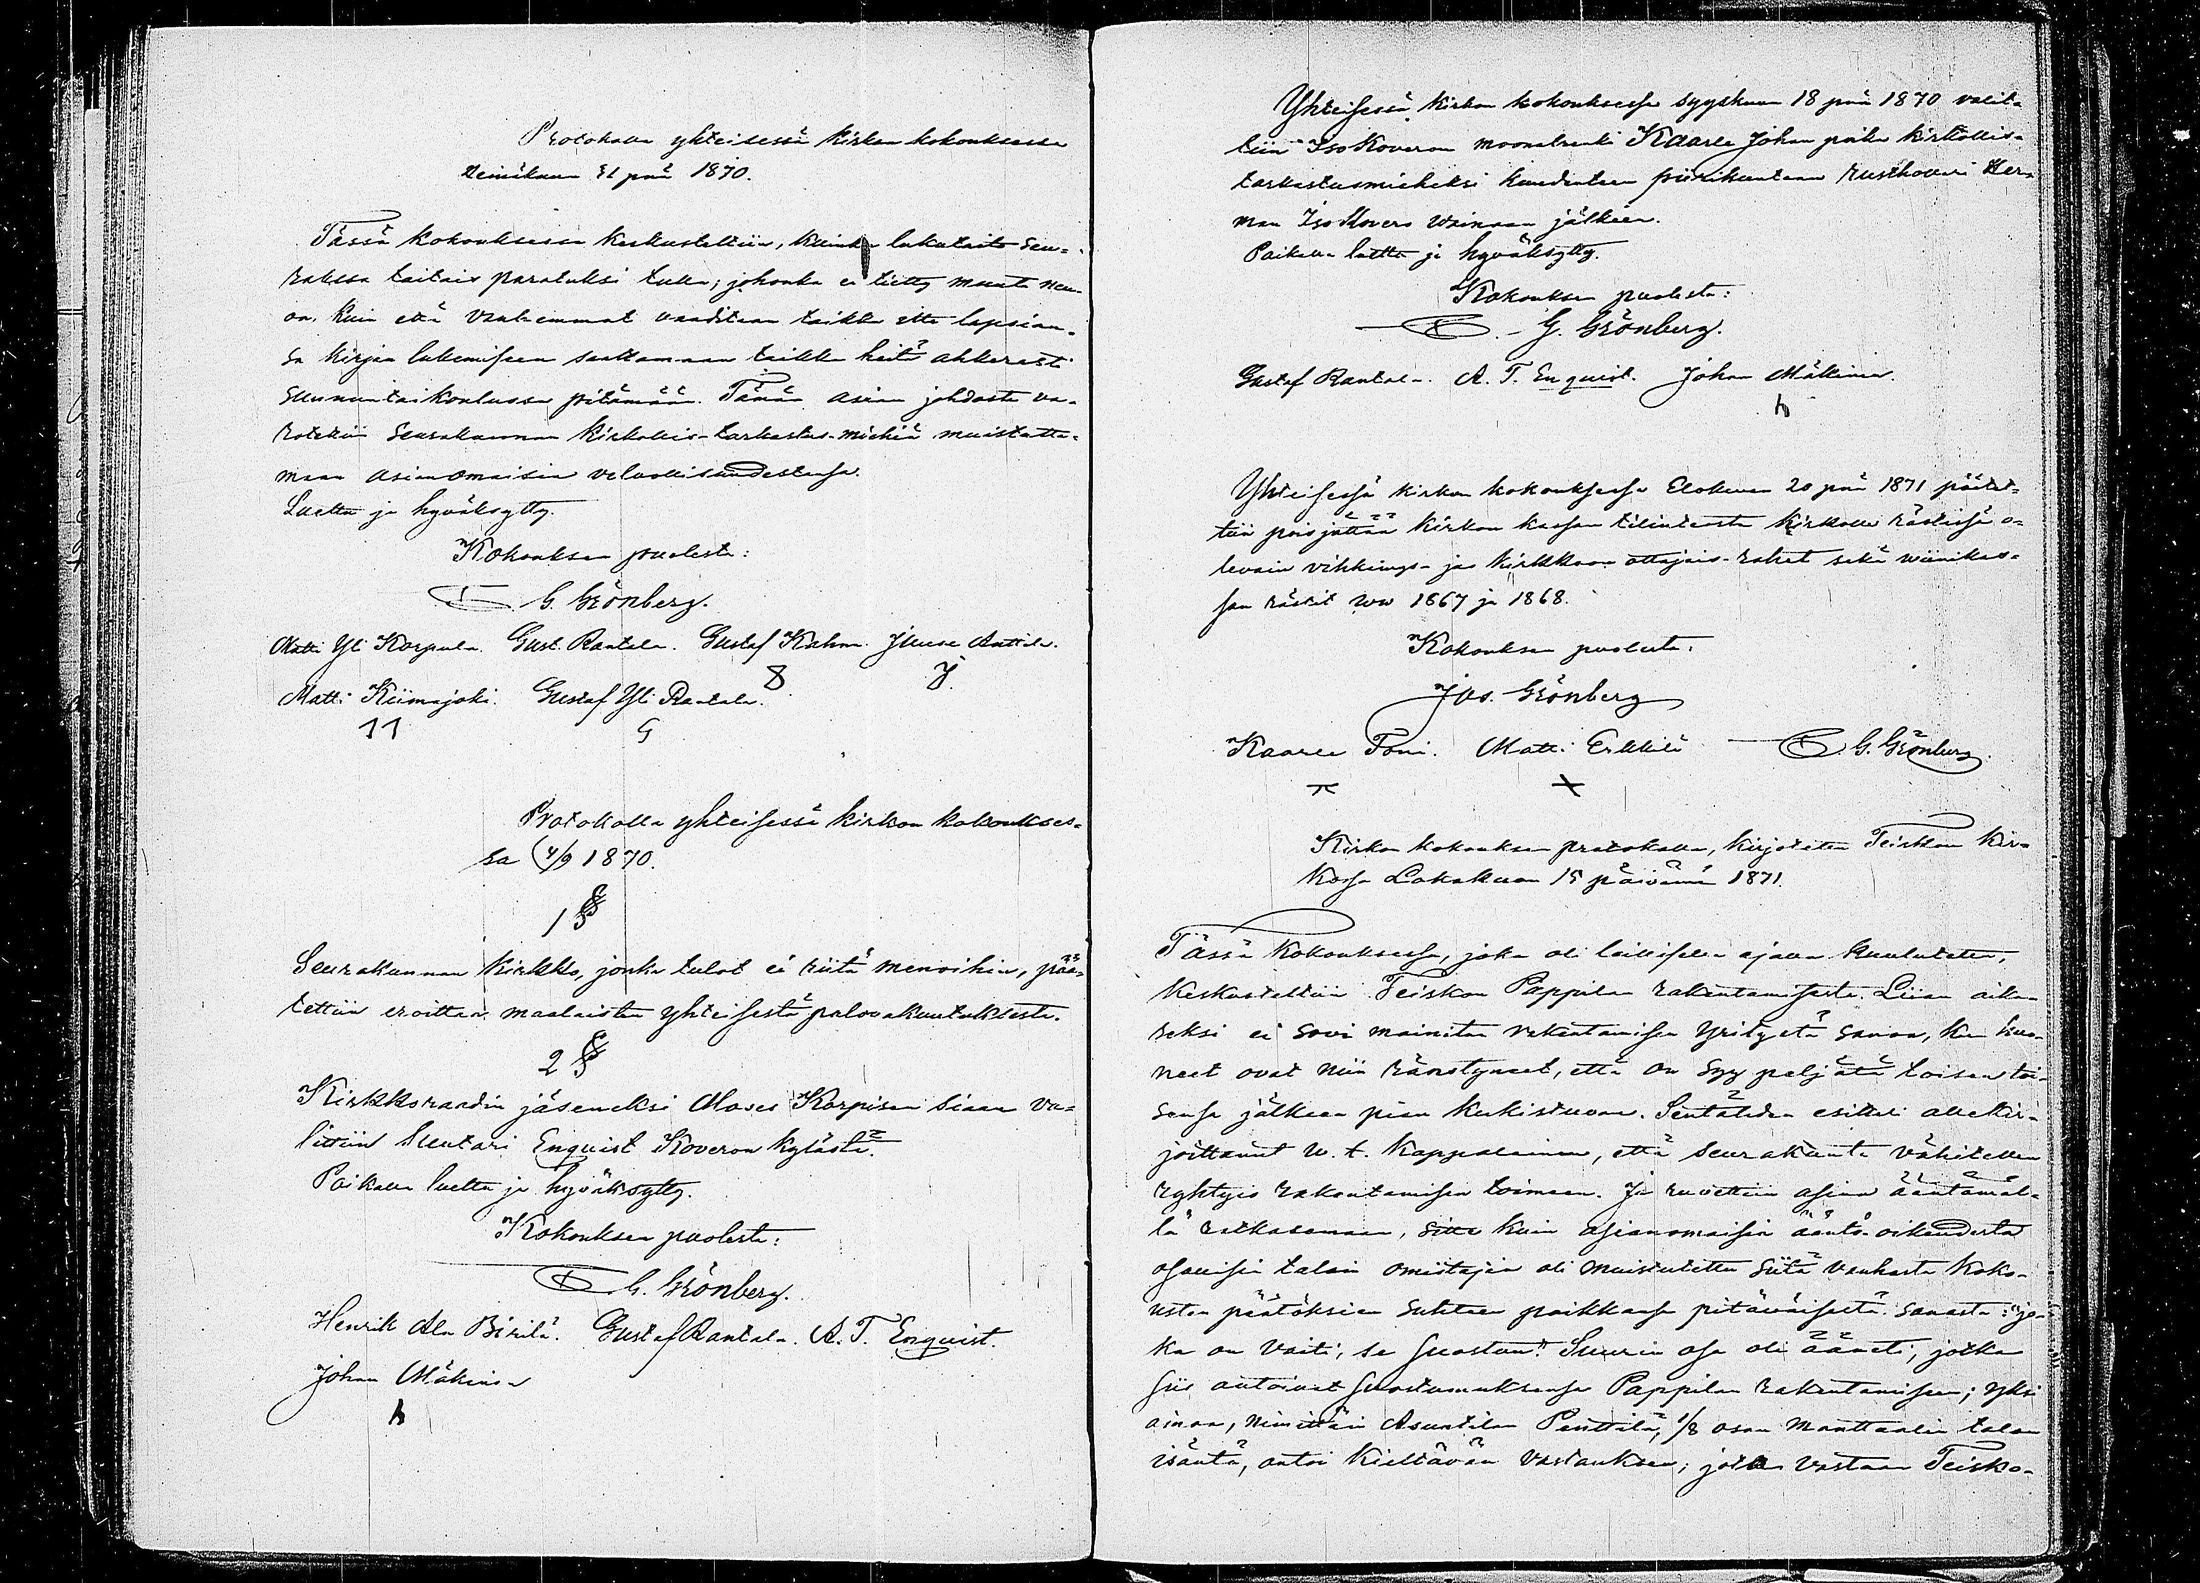 Protokolla yhteisessä kirkon kokouksessa
Heinäkuun 31 pnä 1870.
Tässä kokouksessa keskusteltiin, kuinka lukutaito seu-
rakssa taitais paratuksi tulla; johonka ei tietty muuta neu-
oa, kuin että vanhemmat vaaditaan taikka itte lapsian-
sa kirjan lukemiseen saattamaan taikka heitä ahkerasti
sunnuntaikoulussa pitämään. Tämän asian johdosta va-
rotettiin Seurakunnan kirkollis-tarkastus-miehiä muistutta-
maan asianomaisia velvollisuudestansa.
Luettu ja hyväksytty.
Kokouksen puolesta:
G. Grönberg.
Matti Yli Korpula. Gust. Rantala. Gustaf Kahm. Juuse Anttila.
Matti Kiimajoki. Gustaf Yli Rantala.
11 G
Protokolla yhteisessä kirkon kokoukses-
sa 4/9 1870.
1 §
Seurakunnan kirkko, jonka tulot ei riitä menoihin, pää-
tettiin eroittaa maalaisten yhteisestä palovakuutuksesta.
2 §
Kirkkoraadin jäseneksi Moses Karpisen siaan va-
littiin Suutari Enquist Koveron kylästä.
Paikalla luettu ja hyväksytty.
Kokouksen puolesta:
G. Grönberg.
Henrik Ala Pirilä. Gustaf Rantala. A. T. Enquist.
Johan Mäkinen
h
Yhteisessä kirkon kokouksessa Syyskuun 18 pnä 1870 valit-
tiin Iso Koveron moonatrenki Kaarle Johan poika kirkollis-
tarkastusmieheksi kuudenteen piirikuntaan Rusthollari Her-
man Iso Kovero Wainaan jälkeen.
Paikalla luettu ja hyväksytty.
Kokouksen puolesta:
G. Grönberg.
Gustaf Rantala. A. T. Enquist. Johan Mäkinen.
h
Yhteisessä kirkon kokouksessa Elokuun 20 pnä 1871 päätet-
tiin poisjättää kirkon kassan tilinteosta kirkolle rästissä o-
levain vihkimys- ja kirkkoon ottajais-rahat sekä wiinikas-
san rästit ww 1867 ja 1868.
Kokouksen puolesta:
Jos. Grönberg
Kaarle Toni. Matti Erkkilä G. Grönberg.
Kirkon kokouksen protokolla, kirjoitettu Teiskon kir-
kossa Lokakuun 15 päivänä 1871.
Tässä kokouksessa, joka oli laillisella ajalla kuulutettu,
keskusteltiin Teiskon Pappilan rakentamisesta. Liian aika-
seksi ei sovi mainitun rakentamisen yritystä sanoa, kun huo-
neet ovat niin ränstyneet, että on syy peljätä toisen toi-
sensa jälkeen pian kukistuvan. Sentähden esitteli allekir-
joittanut w. t. kappalainen, että seurakunta vähitellen
ryhtyis rakentamisen toimeen. Ja ruvettiin asiaa ääntämäl-
lä ratkasemaan, sitte kuin asianomaisia ääntö-oikeudesta
osallisia talon omistajia oli muistutettu siitä vanhasta koko-
usten päätöksien suhteen paikkansa pitäväisestä sanasta: "jo-
ka on vaiti, se suostuu". Suurin osa oli ääneti, jotka
siis antoivat suostumuksensa Pappilan rakentamiseen; yksi
ainoa, nimittäin Asuntilan Penttilä, 1/8 osan manttaalin talon
isäntä, antoi kieltävän vastauksen; jota vastaan Teisko-